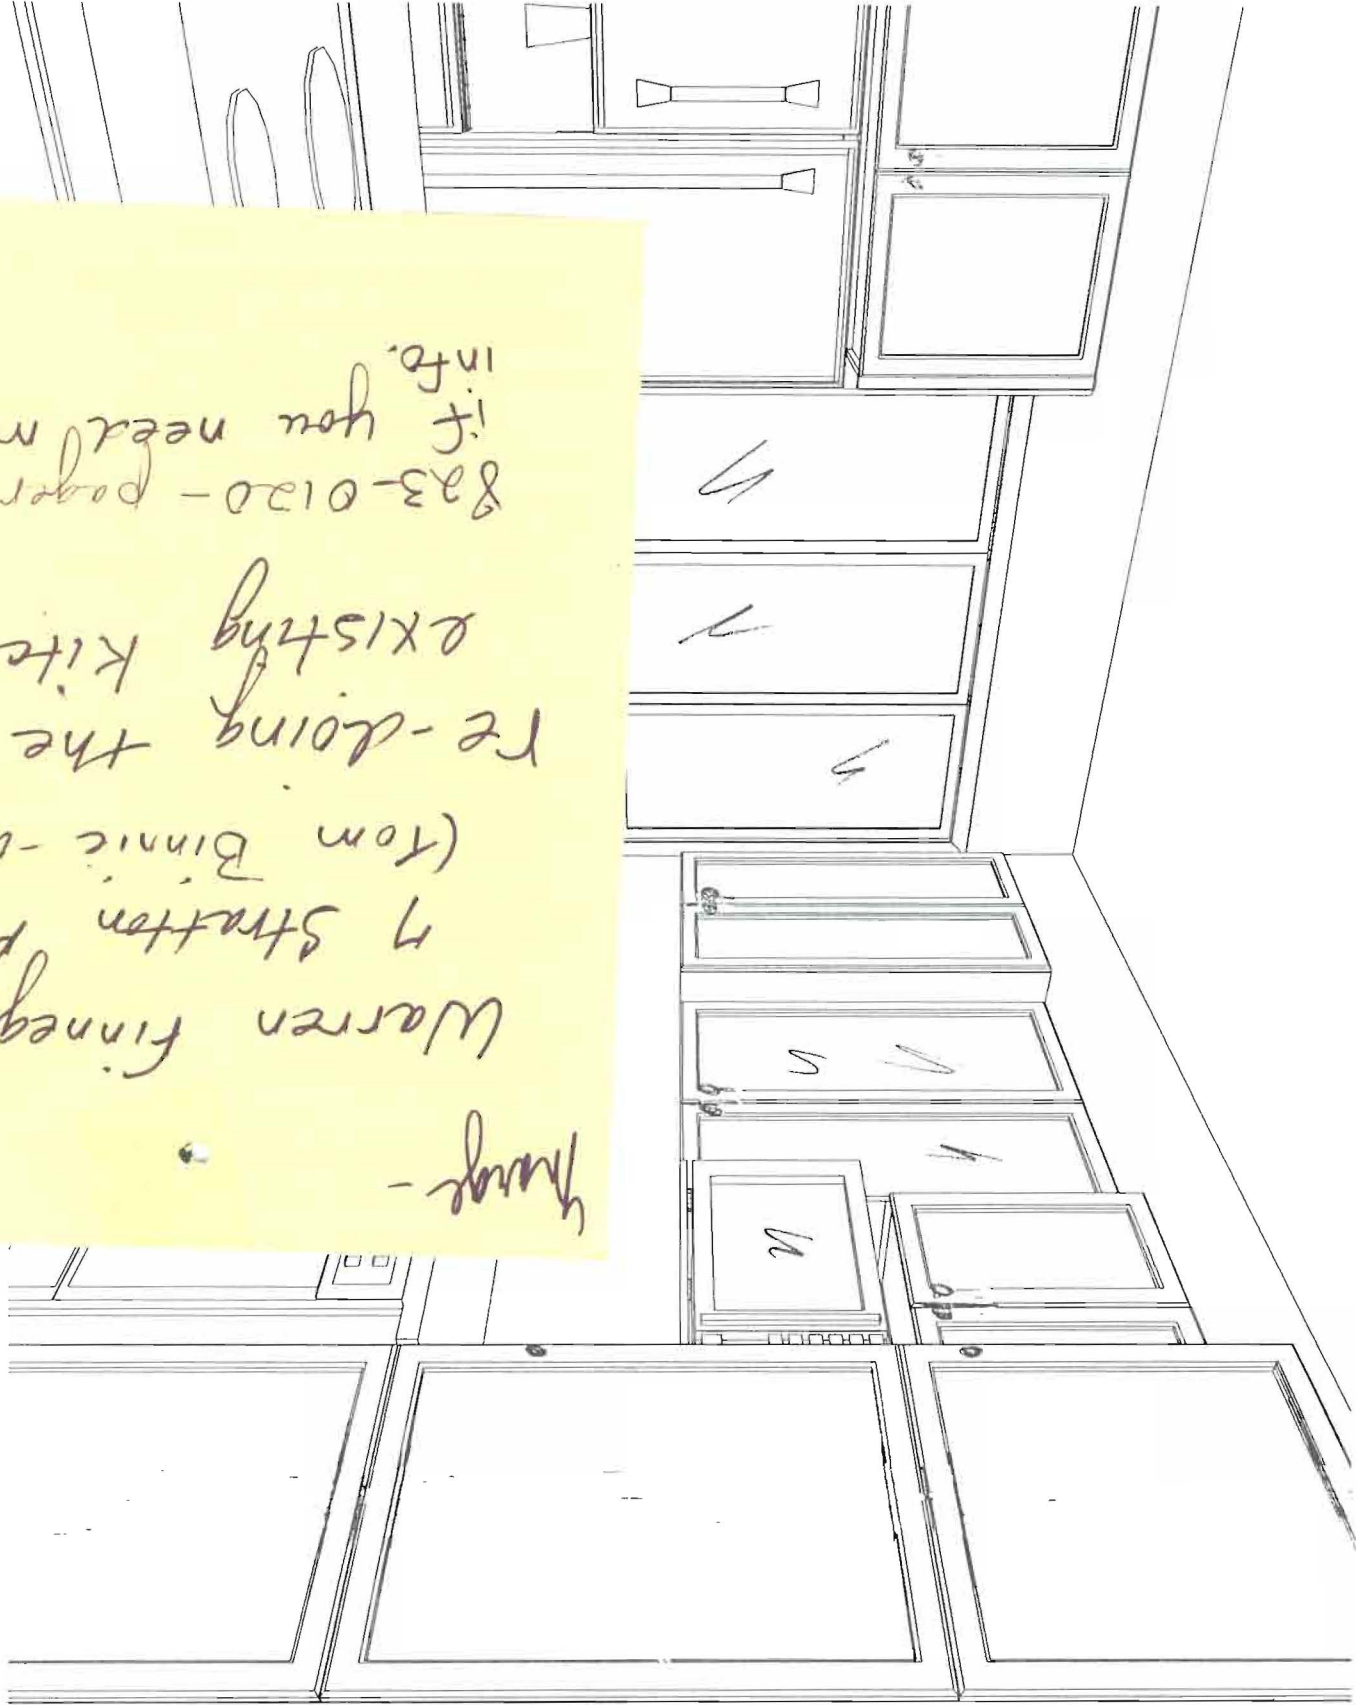 Marge -
Warren Finneg
7 Stratton
(Tom Binnie -
re-doing the
existing Kitc
823-0120 - pager
if you need m
info.